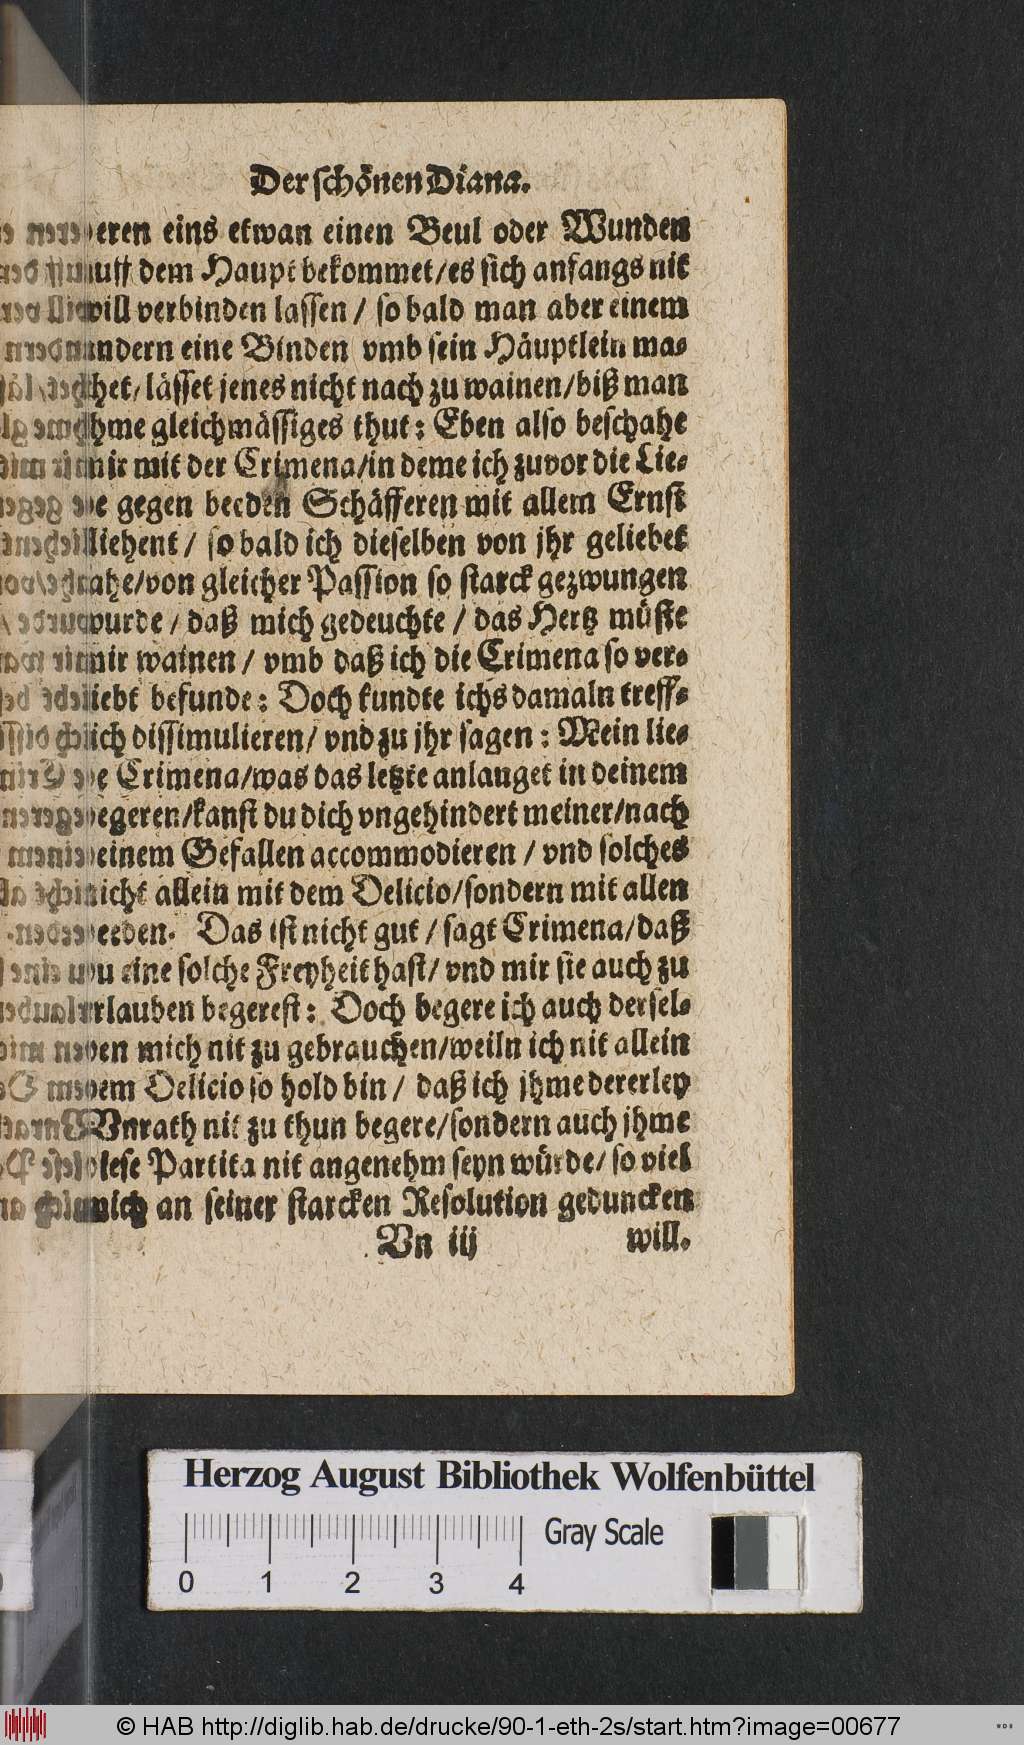 Der schönen Diana.
deren eins etwan einen Beul oder Wunden
auff dem Haupt bekommet/es sich anfangs nit
will verbinden lassen / so bald man aber einem
andern eine Binden vmb sein Häuptlein ma-
chet/lässet jenes nicht nach zu wainen/biß man
jhme gleichmässiges thut: Eben also beschahe
mir mit der Crimena/in deme ich zuvor die Lie-
be gegen beeden Schäfferen mit allem Ernst
fliehent / so bald ich dieselben von jhr geliebet
sahe/von gleicher Passion so starck gezwungen
wurde / daß mich gedeuchte / das Hertz müste
mir wainen / vmb daß ich die Crimena so ver-
liebt befunde: Doch kundte ichs damaln treff-
lich dissimulieren/ vnd zu jhr sagen: Mein lie-
be Crimena/was das letzte anlanget in deinem
begeren/kanst du dich vngehindert meiner/nach
deinem Gefallen accommodieren / vnd solches
nicht allein mit dem Delicio/sondern mit allen
beeden. Das ist nicht gut / sagt Crimena/daß
du eine solche Freyheit hast/ vnd mir sie auch zu
erlauben begerest: Doch begere ich auch dersel-
ben mich nit zu gebrauchen/weiln ich nit allein
dem Delicio so hold bin / daß ich jhme dererley
Vnrath nit zu thun begere/sondern auch jhme
diese Partita nit angenehm seyn würde/ so viel
mich an seiner starcken Resolution geduncken
Vn iij will.
Herzog August Bibliothek Wolfenbüttel
Gray Scale
0 1 2 3 4
© HAB http://diglib.hab.de/drucke/90-1-eth-2s/start.htm?image=00677